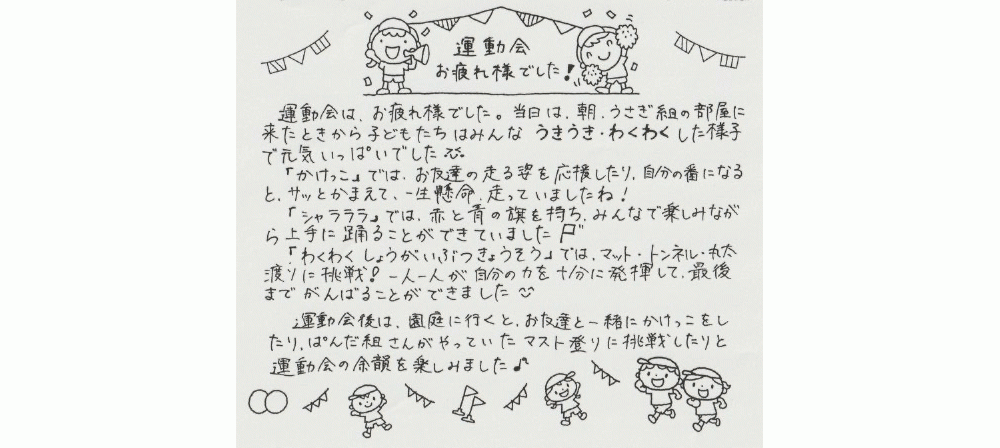 運動会
お疲れ様でした!
運動会は、お疲れ様でした。当日は、朝、うさぎ組の部屋に
来たときから子どもたちはみんな うきうき・わくわくした様子
で元気いっぱいでした
「かけっこ」では、お友達の走る姿を応援したり、自分の番になる
と、サッとかまえて、一生懸命、走っていましたね!
「シャラララ」では、赤と青の旗を持ち、みんなで楽しみなが
ら上手に踊ることができていました
「わくわくしょうがいぶつきょうそう」では、マット・トンネル・丸太
渡りに挑戦!一人一人が自分の力を十分に発揮して、最後
までがんばることができました
運動会後は、園庭に行くと、お友達と一緒にかけっこをし
たり、ぱんだ組さんがやっていたマスト登りに挑戦したりと
運動会の余韻を楽しみました♪